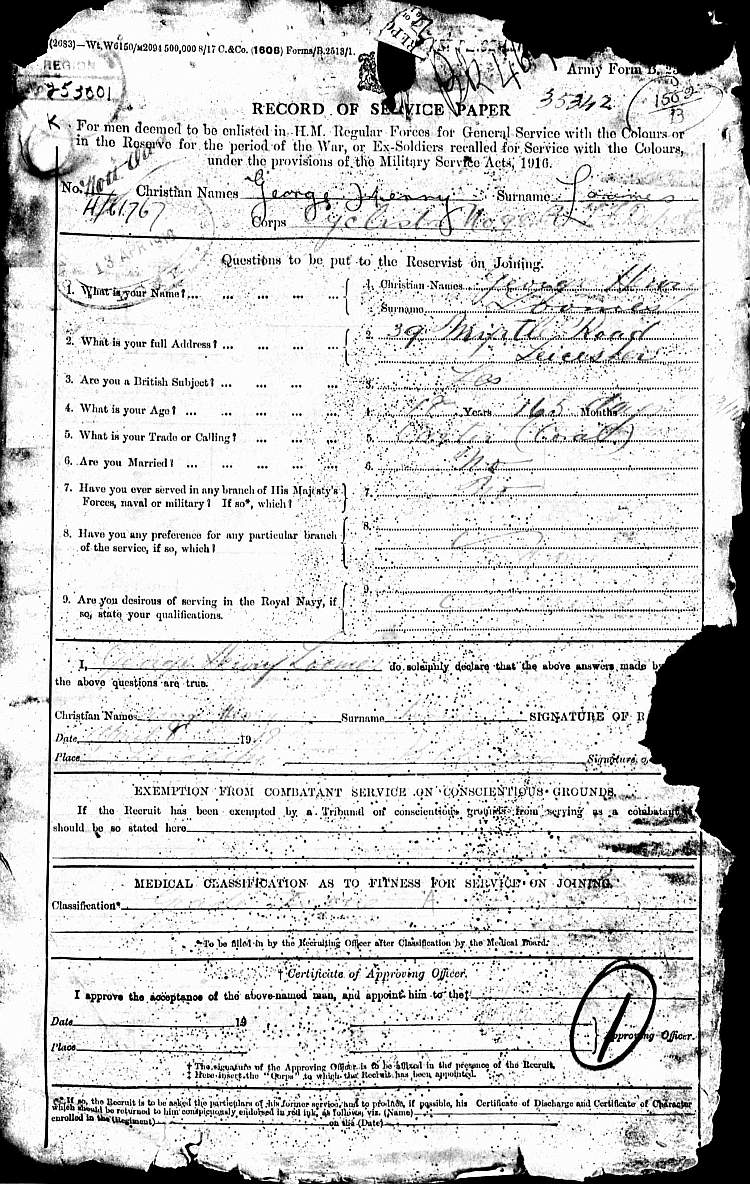 (2083)—Wt. W6150/M2094 500,000 8/17 C.&Co. (1606) Forms/B.2513/1.
REGION
253001
Army Form B.
35342
RECORD OF SERVICE PAPER
For men deemed to be enlisted in H.M. Regular Forces for General Service with the Colours or
in the Reserve for the period of the War, or Ex-Soldiers recalled for Service with the Colours,
under the provisions of the Military Service Acts, 1916.
No. Christian Names George Henry Surname
Corps
13 APR
Questions to be put to the Reservist on Joining.
1. What is your Name? ... ... ... ... ...
1. Christian Names George
Surname
2. What is your full Address? ... ... ... ...
2. 39 Myrtle Road
Leicester
3. Are you a British Subject? ... ... ... ...
3. Yes
4. What is your Age? ... ... ... ... ...
4. Years 165 Months
5. What is your Trade or Calling? ... ... ...
5. Carter (Coal)
6. Are you Married? ... ... ... ... ...
6. No
7. Have you ever served in any branch of His Majesty's
Forces, naval or military? If so*, which?
7. No
8. Have you any preference for any particular branch
of the service, if so, which?
8.
9. Are you desirous of serving in the Royal Navy, if
so, state your qualifications.
9.
I, George Henry do solemnly declare that the above answers made by
the above questions are true.
Christian Names Surname SIGNATURE OF R
Date 19
Place Signature o
EXEMPTION FROM COMBATANT SERVICE ON CONSCIENTIOUS GROUNDS.
If the Recruit has been exempted by a Tribunal on conscientious grounds from serving as a combatant
should be so stated here
MEDICAL CLASSIFICATION AS TO FITNESS FOR SERVICE ON JOINING.
Classification*
*To be filled in by the Recruiting Officer after Classification by the Medical Board.
† Certificate of Approving Officer.
I approve the acceptance of the above-named man, and appoint him to the‡
Date 19
1
Approving Officer.
Place
† The signature of the Approving Officer is to be affixed in the presence of the Recruit.
‡ Here insert the "Corps" to which the Recruit has been appointed.
* If so, the Recruit is to be asked the particulars of his former service, and to produce, if possible, his Certificate of Discharge and Certificate of Character
which should be returned to him conspicuously endorsed in red ink, as follows, viz. (Name)
enrolled in the (Regiment) on the (Date)